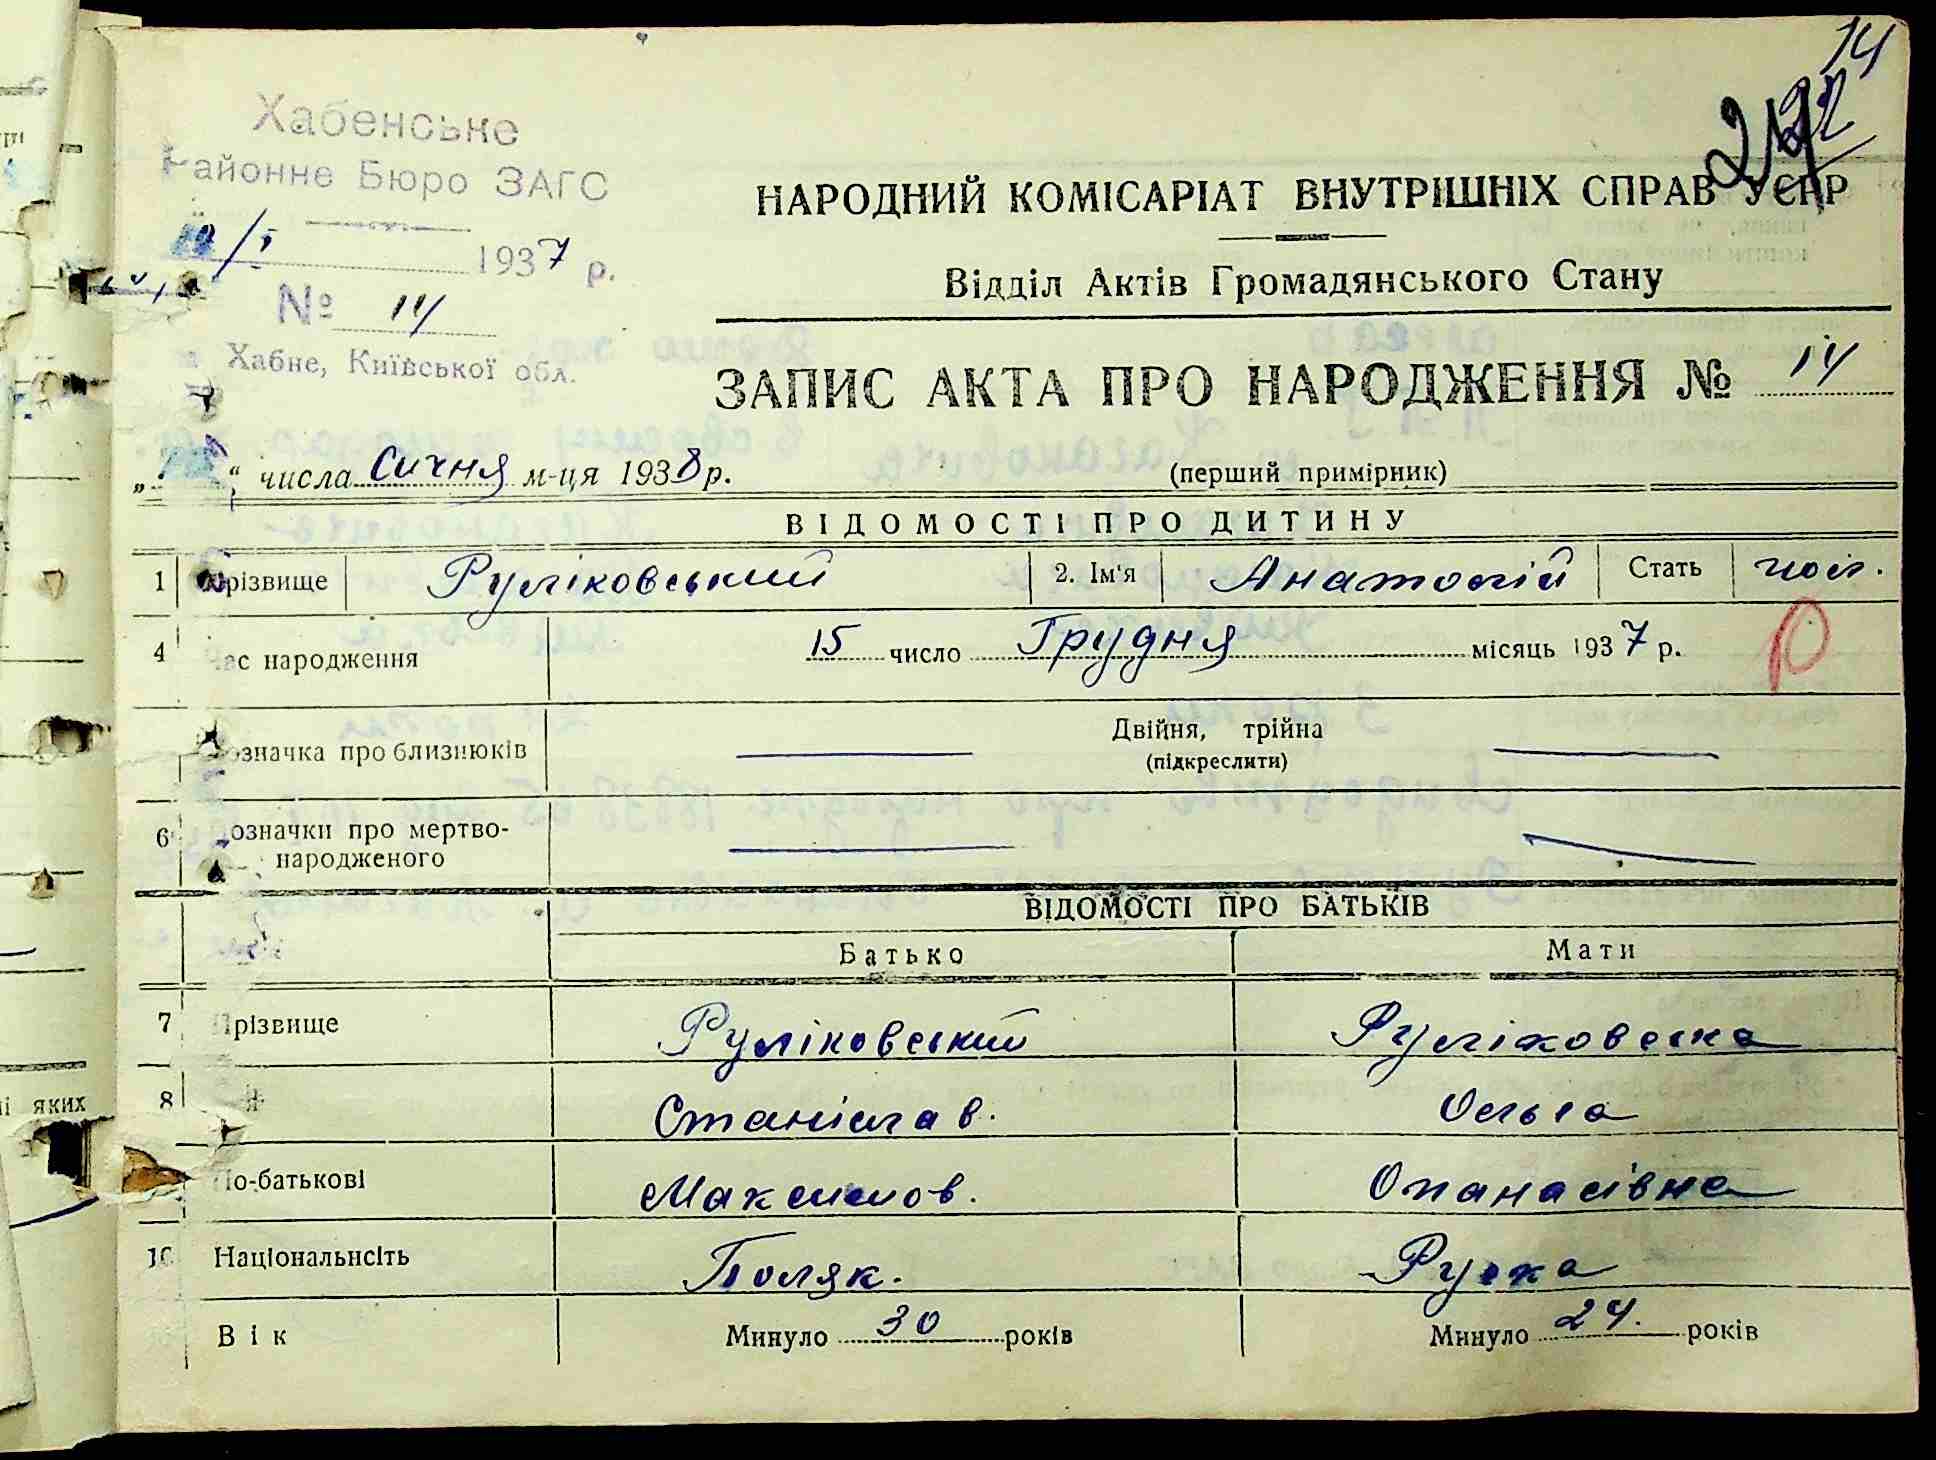 14
Хабенське
Районне Бюро ЗАГС
1937 р.
№ 14
Хабне, Київської обл.
НАРОДНИЙ КОМІСАРІАТ ВНУТРІШНІХ СПРАВ УСРР
Відділ Актів Громадянського Стану
ЗАПИС АКТА ПРО НАРОДЖЕННЯ № 14
числа Січня м-ця 1938 р. (перший примірник)
ВІДОМОСТІ ПРО ДИТИНУ
1 Прізвище Руліковський 2. Ім'я Анатолій Стать чол.
4 Час народження 15 число Грудня місяць 1937 р.
Позначка про близнюків Двійня, трійна
(підкреслити)
6 Позначки про мертво-
народженого
ВІДОМОСТІ ПРО БАТЬКІВ
Батько Мати
7 Прізвище Руліковський Руліковська
8 Станіслав. Ольга
По-батькові Максимов. Опанасівна
10 Національнсіть Поляк. Руска
Вік Минуло 30 років Минуло 24. років
і яких